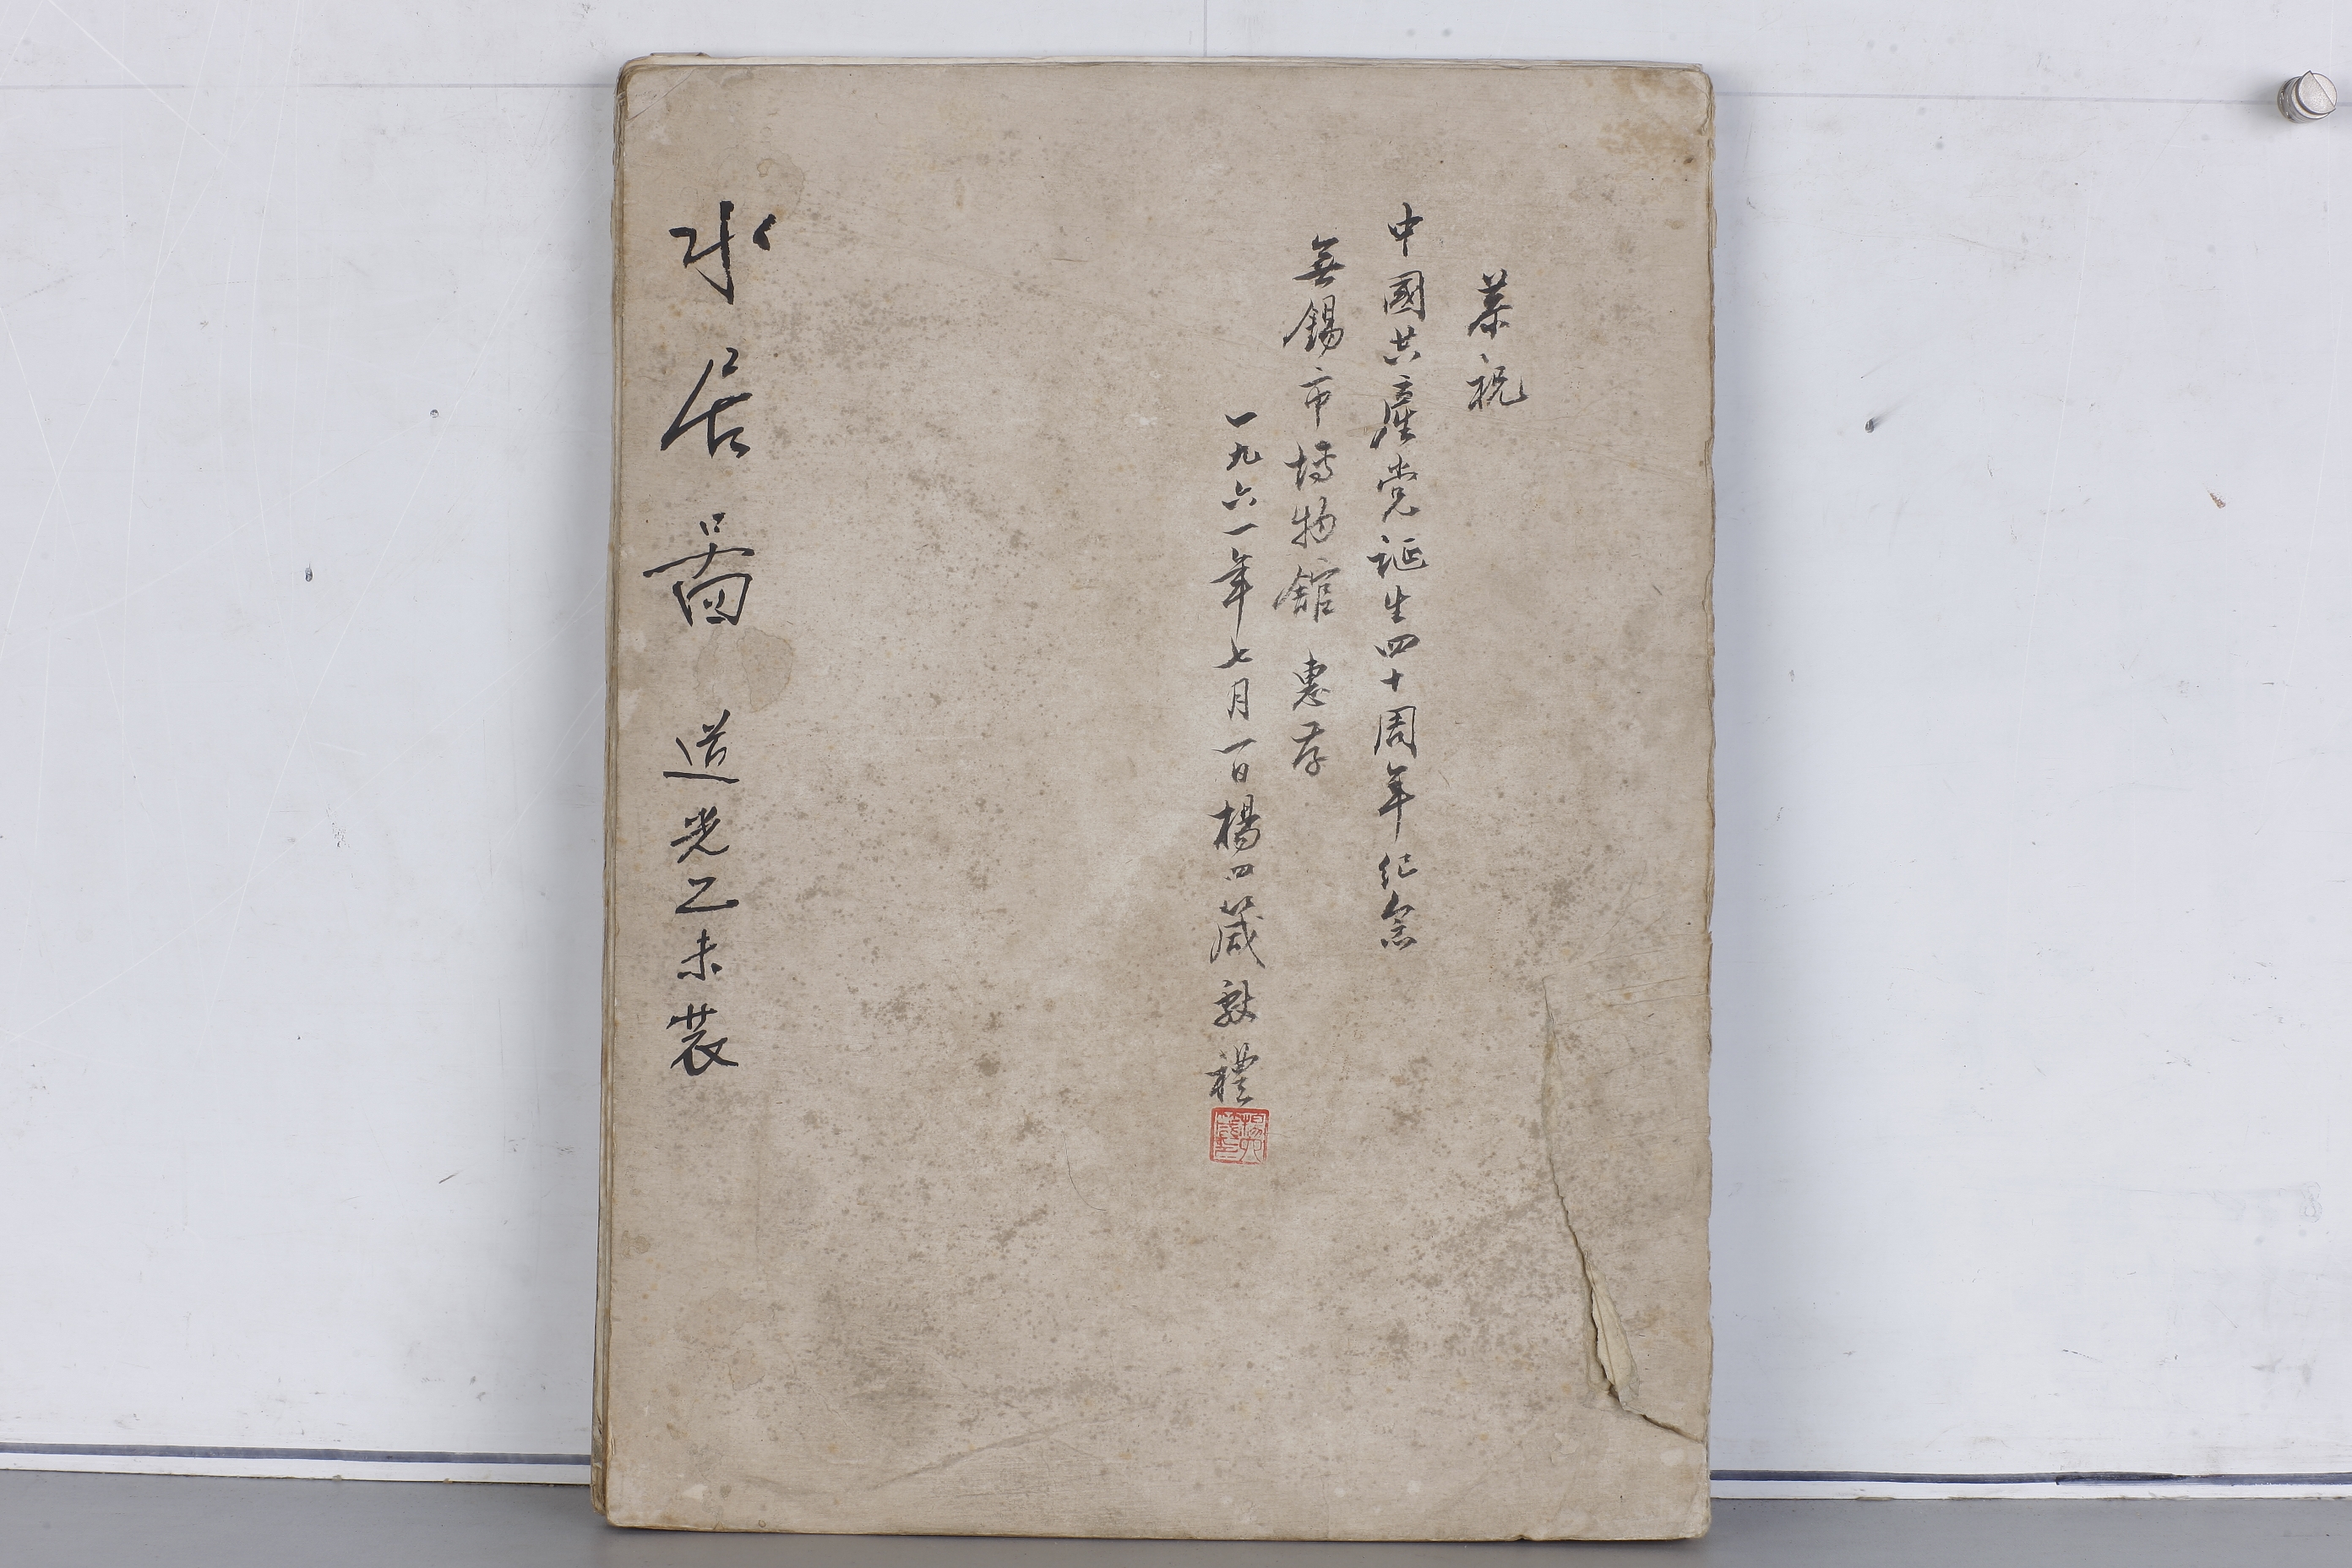 恭祝
中國共產党诞生四十周年纪念
無錫市博物館 惠存
一九六一年七月一日楊四箴敬禮
水居啚 道光乙未裝